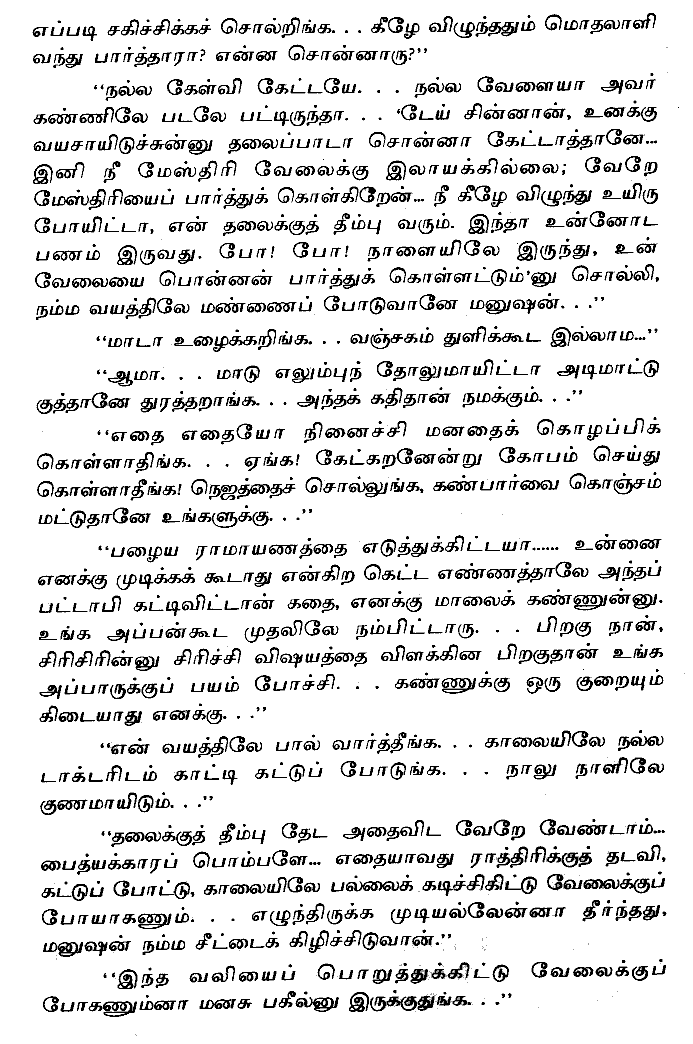 எப்படி சகிச்சிக்கச் சொல்றிங்க. . . கீழே விழுந்ததும் மொதலாளி
வந்து பார்த்தாரா? என்ன சொன்னாரு?''
''நல்ல கேள்வி கேட்டயே. . . நல்ல வேளையா அவர்
கண்ணிலே படலே பட்டிருந்தா. . . 'டேய் சின்னான், உனக்கு
வயசாயிடுச்சுன்னு தலைப்பாடா சொன்னா கேட்டாத்தானே...
இனி நீ மேஸ்திரி வேலைக்கு இலாயக்கில்லை; வேறே
மேஸ்திரியைப் பார்த்துக் கொள்கிறேன்... நீ கீழே விழுந்து உயிரு
போயிட்டா, என் தலைக்குத் தீம்பு வரும். இந்தா உன்னோட
பணம் இருவது. போ! போ! நாளையிலே இருந்து, உன்
வேலையை பொன்னன் பார்த்துக் கொள்ளட்டும்'னு சொல்லி,
நம்ம வயத்திலே மண்ணைப் போடுவானே மனுஷன். . .''
''மாடா உழைக்கறிங்க. . . வஞ்சகம் துளிக்கூட இல்லாம...''
''ஆமா. . . மாடு எலும்புந் தோலுமாயிட்டா அடிமாட்டு
குத்தானே துரத்தறாங்க. . . அந்தக் கதிதான் நமக்கும். . .''
''எதை எதையோ நினைச்சி மனதைக் கொழப்பிக்
கொள்ளாதிங்க. . . ஏங்க! கேட்கறனேன்று கோபம் செய்து
கொள்ளாதீங்க! நெஜத்தைச் சொல்லுங்க, கண்பார்வை கொஞ்சம்
மட்டுதானே உங்களுக்கு. . .''
''பழைய ராமாயணத்தை எடுத்துக்கிட்டயா...... உன்னை
எனக்கு முடிக்கக் கூடாது என்கிற கெட்ட எண்ணத்தாலே அந்தப்
பட்டாபி கட்டிவிட்டான் கதை, எனக்கு மாலைக் கண்ணுன்னு.
உங்க அப்பன்கூட முதலிலே நம்பிட்டாரு. . . பிறகு நான்,
சிரிசிரின்னு சிரிச்சி விஷயத்தை விளக்கின பிறகுதான் உங்க
அப்பாருக்குப் பயம் போச்சி. . . கண்ணுக்கு ஒரு குறையும்
கிடையாது எனக்கு. . .''
''என் வயத்திலே பால் வார்த்தீங்க. . . காலையிலே நல்ல
டாக்டரிடம் காட்டி கட்டுப் போடுங்க. . . நாலு நாளிலே
குணமாயிடும். . .''
''தலைக்குத் தீம்பு தேட அதைவிட வேறே வேண்டாம்...
பைத்யக்காரப் பொம்பளே... எதையாவது ராத்திரிக்குத் தடவி,
கட்டுப் போட்டு, காலையிலே பல்லைக் கடிச்சிகிட்டு வேலைக்குப்
போயாகணும். . . எழுந்திருக்க முடியல்லேன்னா தீர்ந்தது,
மனுஷன் நம்ம சீட்டைக் கிழிச்சிடுவான்.''
''இந்த வலியைப் பொறுத்துக்கிட்டு வேலைக்குப்
போகணும்னா மனசு பகீல்னு இருக்குதுங்க. . .''